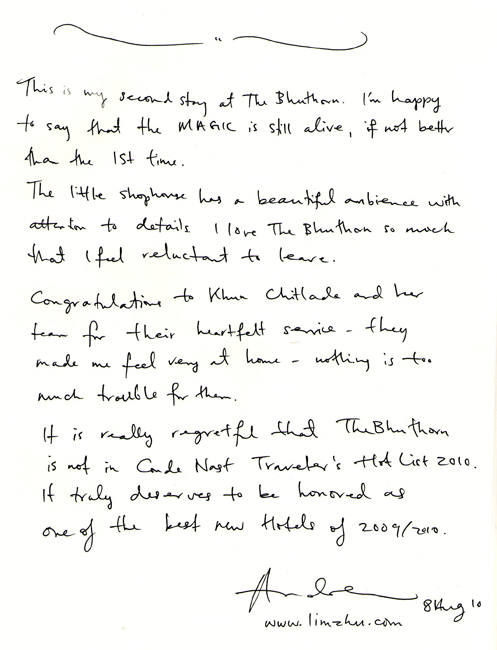 This is my second stay at The Bhuthorn. I'm happy
to say that the MAGIC is still alive, if not better
than the 1st time.
The little shophouse has a beautiful ambience with
attention to details I love The Bhuthorn so much
that I feel reluctant to leave.
Congratulations to Khun Chitlada and her
team for their heartfelt service - they
made me feel very at home - nothing is too
much trouble for them.
It is really regretful that The Bhuthorn
is not in Conde Nast Traveler's Hot List 2010.
It truly deserves to be honored as
one of the best new Hotels of 2009/2010.
Andre
8 Aug 10
www.limzhu.com